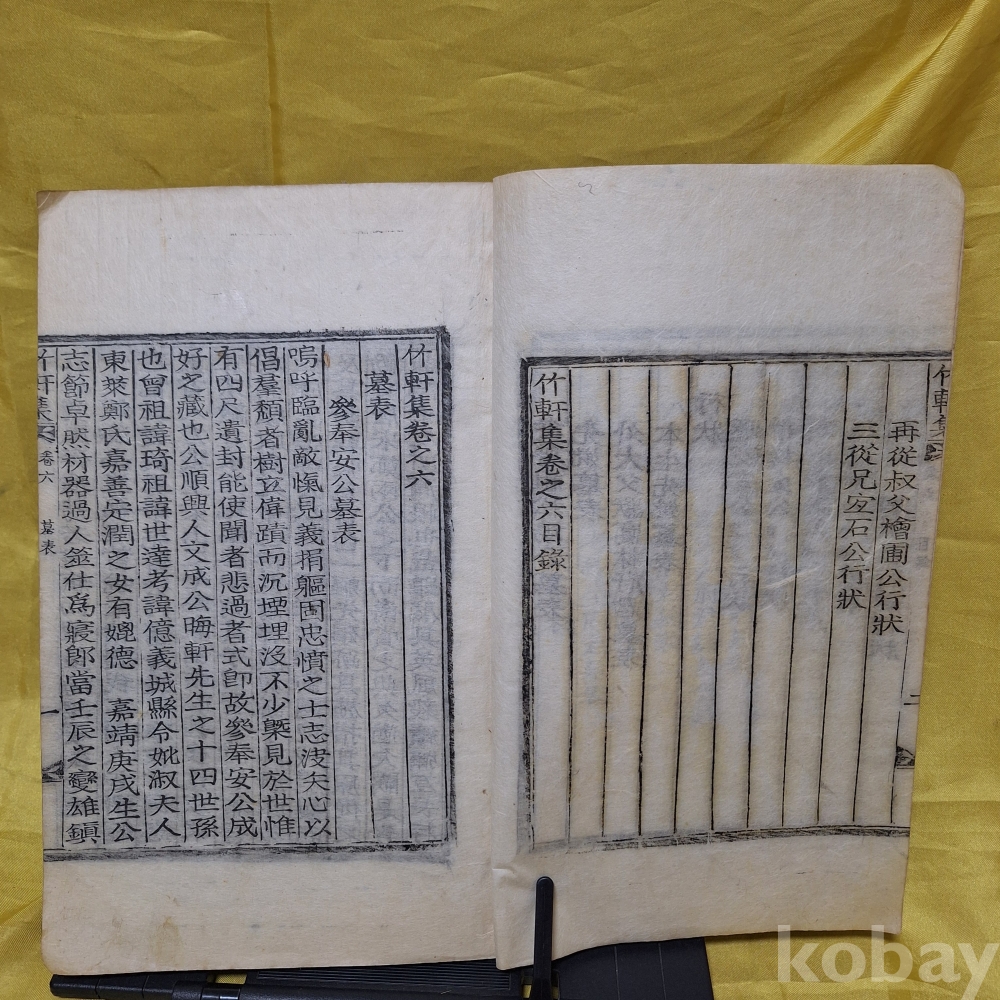 再從叔父檜圃公行狀
三從兄定石公行狀
竹軒集卷之六目錄
竹軒集卷之六
墓表
參奉安公墓表
嗚呼臨亂敵愾見義捐軀固忠憤之士志決矣心以
倡羣顙者樹立偉蹟而沉堙埋沒不少槩見於世惟
有四尺遺封能使聞者悲過者式卽故參奉安公成
好之藏也公順興人文成公晦軒先生之十四世孫
也曾祖諱琦祖諱世達考諱億義城縣令妣淑夫人
東萊鄭氏嘉善定潤之女有媲德 嘉靖庚戌生公
志節卓然材器過人筮仕爲寢郞當壬辰之變雄鎭
竹軒集 卷六 墓表 一
kobay